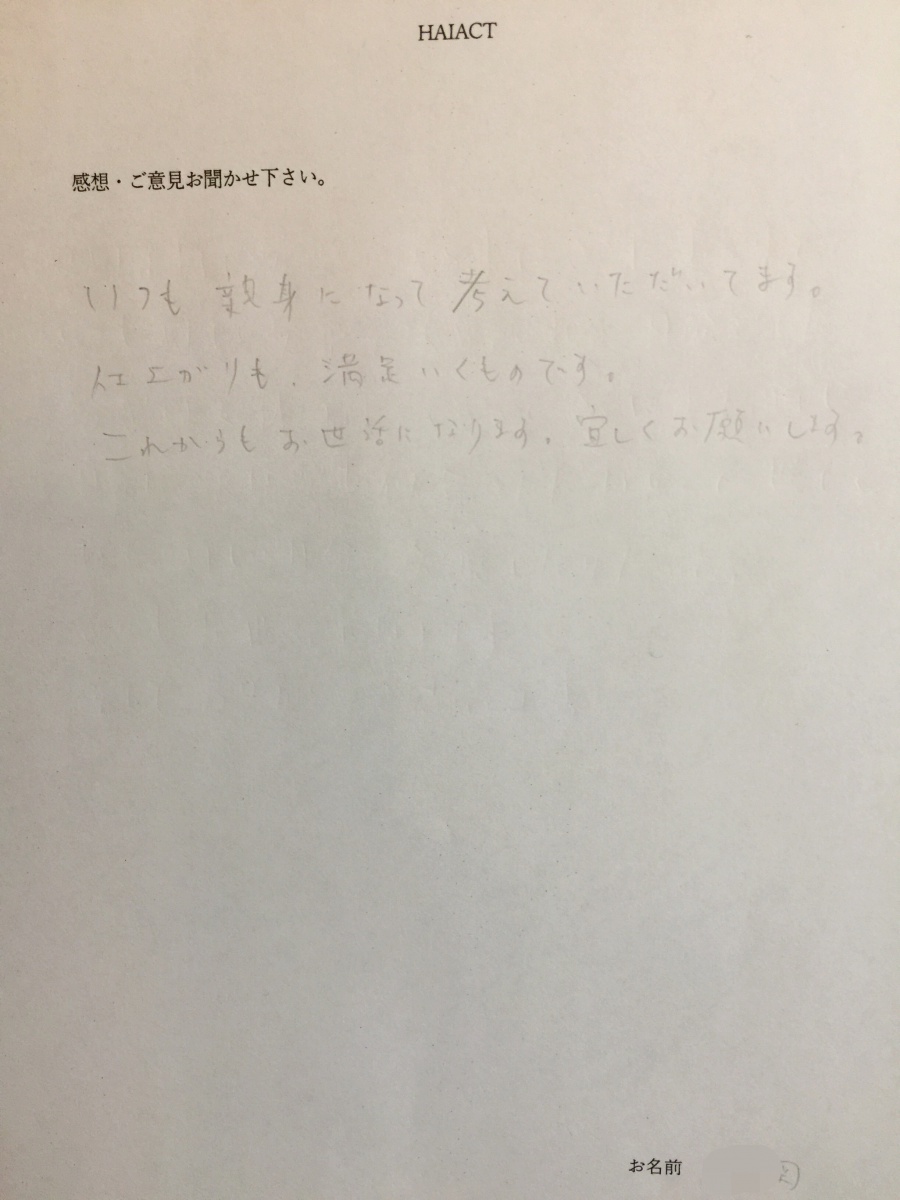 HAIACT
感想・ご意見お聞かせ下さい。
いつも親身になって考えていただいてます。
仕上がりも、満足いくものです。
これからもお世話になります。宜しくお願いします。
お名前